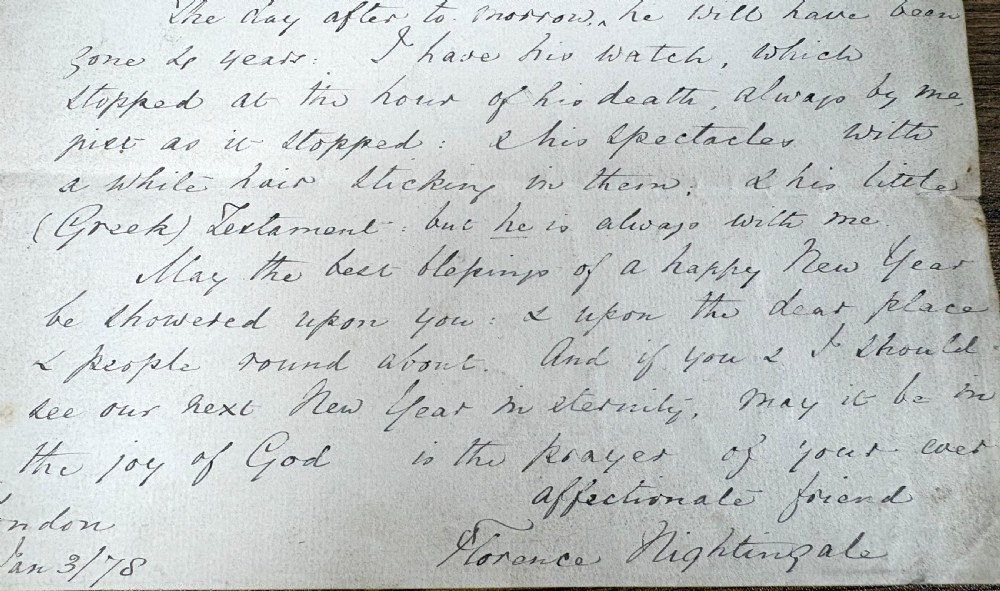 The day after to-morrow, he will have been
gone 4 years: I have his watch, which
stopped at the hour of his death, always by me,
just as it stopped: & his spectacles with
a white hair sticking in them: & his little
(Greek) Testament: but he is always with me.
May the best blessings of a happy New Year
be showered upon you: & upon the dear place
& people round about. And if you & I should
see our next New Year in eternity, may it be in
the joy of God is the prayer of your ever
affectionate friend
Florence Nightingale
ondon
Jan 3/78